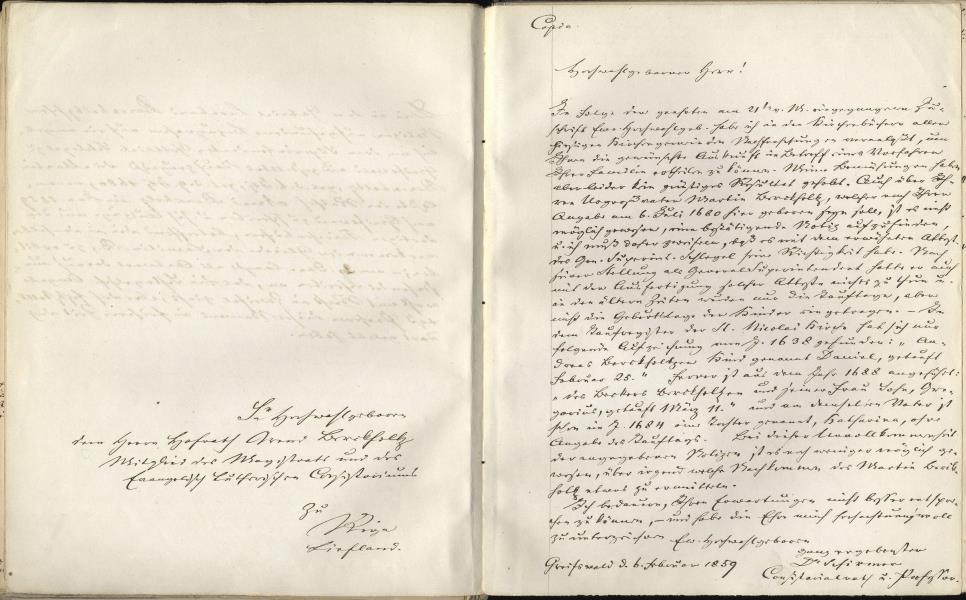 Sr Hochwohlgeboren
dem Herrn Hofrath Arend Berckholtz
Mitglied des Magistrats und des
Evangelisch Lutherischen Consistoriums
zu
Riga
Liefland.
Copia.
Hochwohlgeborner Herr!
In Folge der geehrten am 21t v. M. eingegangenen Zu-
schrift Ew. Hochwohlgeb. habe ich in den Kirchenbüchern aller
hiesigen Kirchengemeinden Nachforschungen veranlaßt, um
Ihnen die gewünschte Auskunft in Betreff eines Vorfahren
Ihrer Familie ertheilen zu können. Meine Bemühungen haben
aber leider kein günstiges Resultat gehabt. Auch über Ih-
ren Urgroßvater Martin Berckholtz, welcher nach Ihrer
Angabe am 6. Juli 1660 hier geboren seyn soll, ist es nicht
möglich gewesen, eine bestätigende Notiz aufzufinden,
u. ich muß daher zweifeln, daß es mit dem erwähnten Attest
des Gen. Superint. Schlegel seine Richtigkeit habe. Nach
seiner Stellung als Generalsuperintendent hatte er auch
mit der Ausfertigung solcher Atteste nichts zu thun u.
in den ältern Zeiten wurden nur die Tauftage, aber
nicht die Geburtstage der Kinder eingetragen. – In
dem Taufregister der St. Nicolai Kirche hab ich nur
folgende Aufzeichnung vom J. 1638 gefunden: „An-
dreas Berckholtzen Kind genannt Daniel, getauft
Februar 25." Ferner ist aus dem Jahr 1688 angeführt:
„des Beckers Berckholtzen und seiner Frau Sohn, Gre-
gorius, getauft März 11." und von demselben Vater ist
schon im J. 1684 eine Tochter genannt, Katharina, ohne
Angabe des Tauftags. Bei dieser Unvollkommenheit
der angegebenen Notizen ist es noch weniger möglich ge-
wesen, über irgend welche Nachkommen des Martin Berck-
holtz etwas zu ermitteln.
Ich bedaure, Ihren Erwartungen nicht besser entspre-
chen zu können, – und habe die Ehre mich hochachtungsvoll
zu unterzeichnen Ew. Hochwohlgeboren
ganz ergebenster
Dr Schirmer
Consistorialrath u. Professor.
Greifswald d. 6. Februar 1859